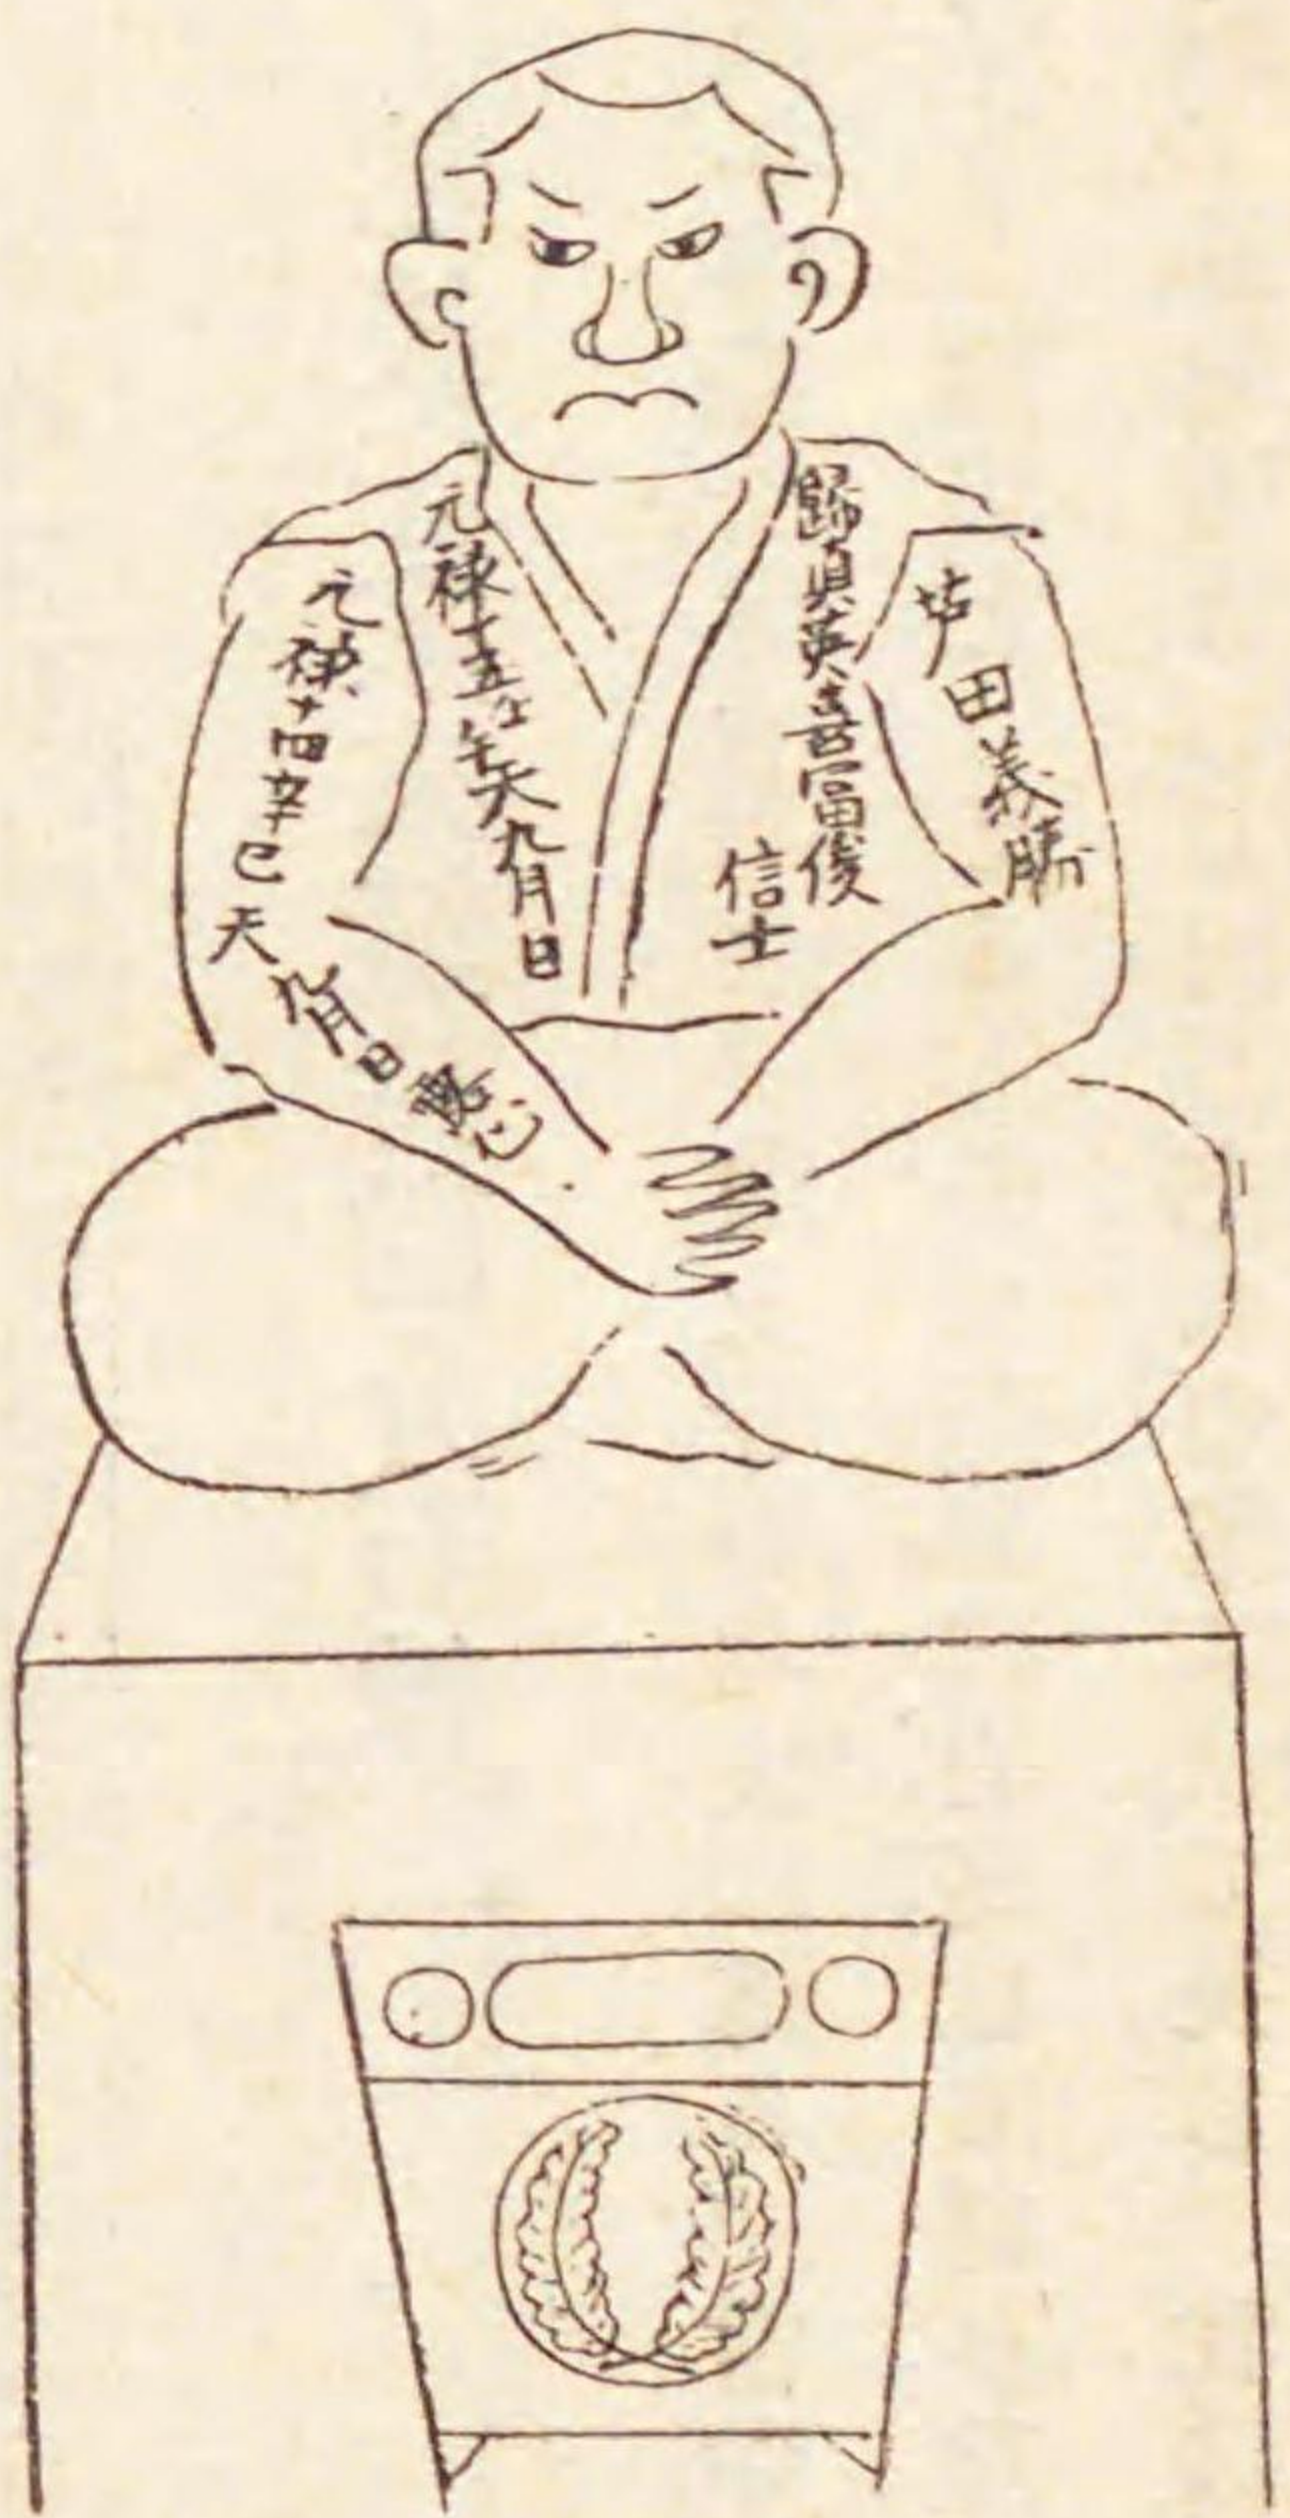 田義勝
歸眞英喜冨俊
信士
元禄十五壬午天九月日
元禄十四辛巳天九月日